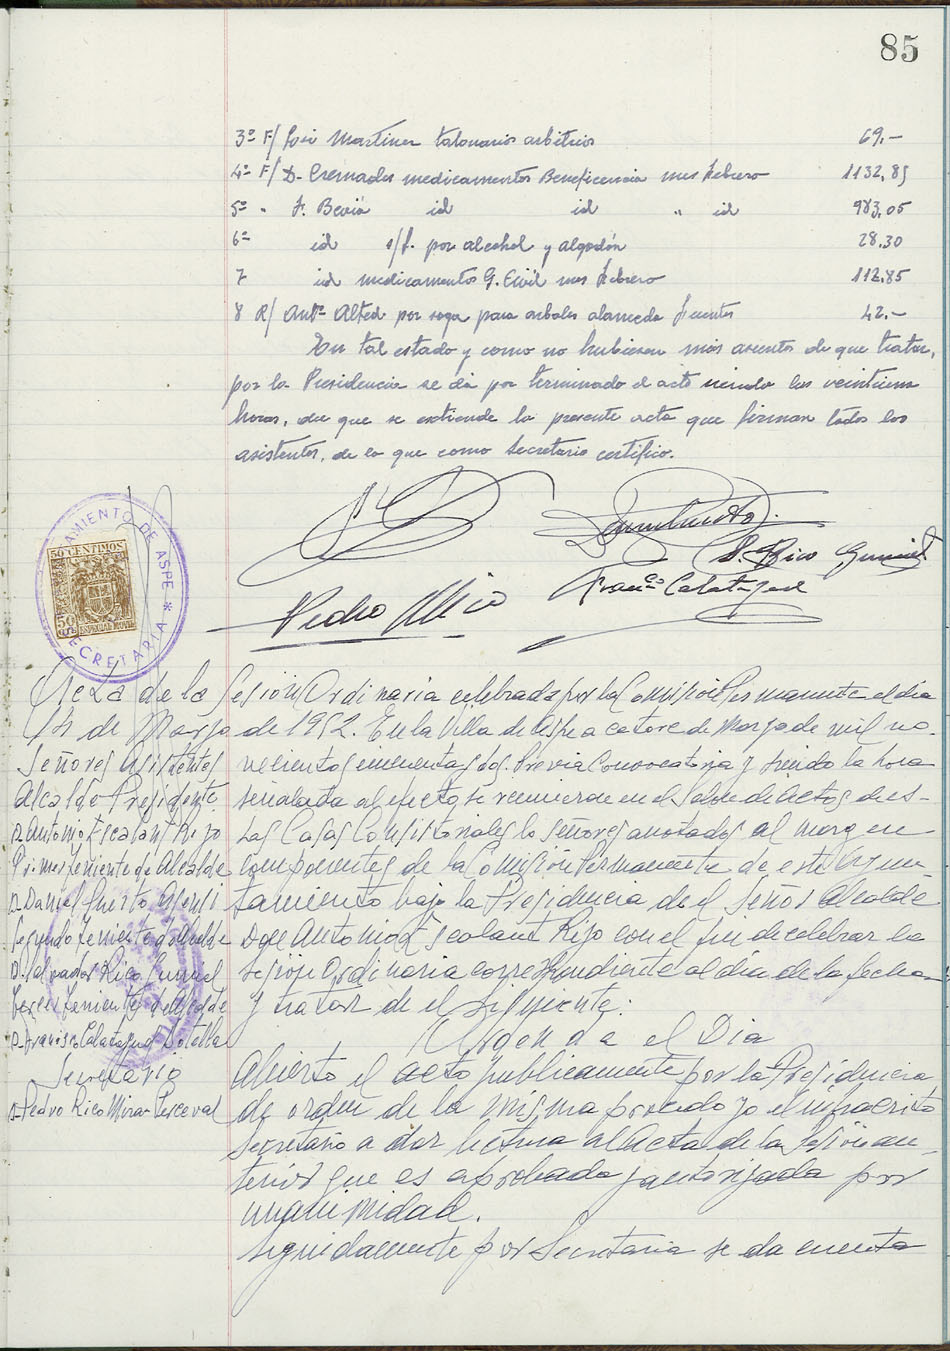 85
3º F/ José Martinez talonarios arbitrios 69,-
4º F/ D. Cremades medicamentos Beneficencia mes febrero 1132,85
5º " F. Beviá id id " id 983,05
6º id s/f. por alcohol y algodón 28,30
7 id medicamentos G. Civil mes febrero 112,85
8 R/ Antº Alted por soga para arboles alameda fuentes 42,-
En tal estado y como no hubiesen más asuntos de que tratar,
por la Presidencia se da por terminado el acto siendo las veintiuna
horas, de que se extiende la presente acta que firman todos los
asistentes, de lo que como Secretario certifico.
AYUNTAMIENTO DE ASPE * SECRETARIA
50 CENTIMOS
50
ESPECIAL MOVIL
S. Rico Gumiel
Franco Calatayud
Pedro Rico
Acta de la Sesión Ordinaria celebrada por la Comisión Permanente el día
14 de Marzo de 1952. En la Villa de Aspe a catorce de Marzo de mil no-
Señores Asistentes
Alcalde Presidente
D. Antonio Escalant Rizo
Primer Teniente de Alcalde
D. Daniel Puerto Asensi
Segundo Teniente de Alcalde
D. Salvador Rico Gumiel
Tercer Teniente de Alcalde
D. Francisco Calatayud Botella
Secretario
D. Pedro Rico Mira-Perceval
vecientos cincuenta y dos. Previa Convocatoria y siendo la hora
señalada al efecto se reunieron en el Salón de Actos de es-
tas Casas Consistoriales lo señores anotados al margen
componentes de la Comisión Permanente de este Ayun-
tamiento bajo la Presidencia de el Señor Alcalde
Don Antonio Escalant Rizo con el fin de celebrar la
sesión Ordinaria correspondiente al día de la fecha
y tratar de el siguiente:
Orden de el Dia
Abierto el acto publicamente por la Presidencia
de orden de la misma procedo yo el infrascrito
Secretario a dar lectura al Acta de la Sesión an-
terior que es aprobada y autorizada por
unanimidad.
Seguidamente por Secretaria se da cuenta